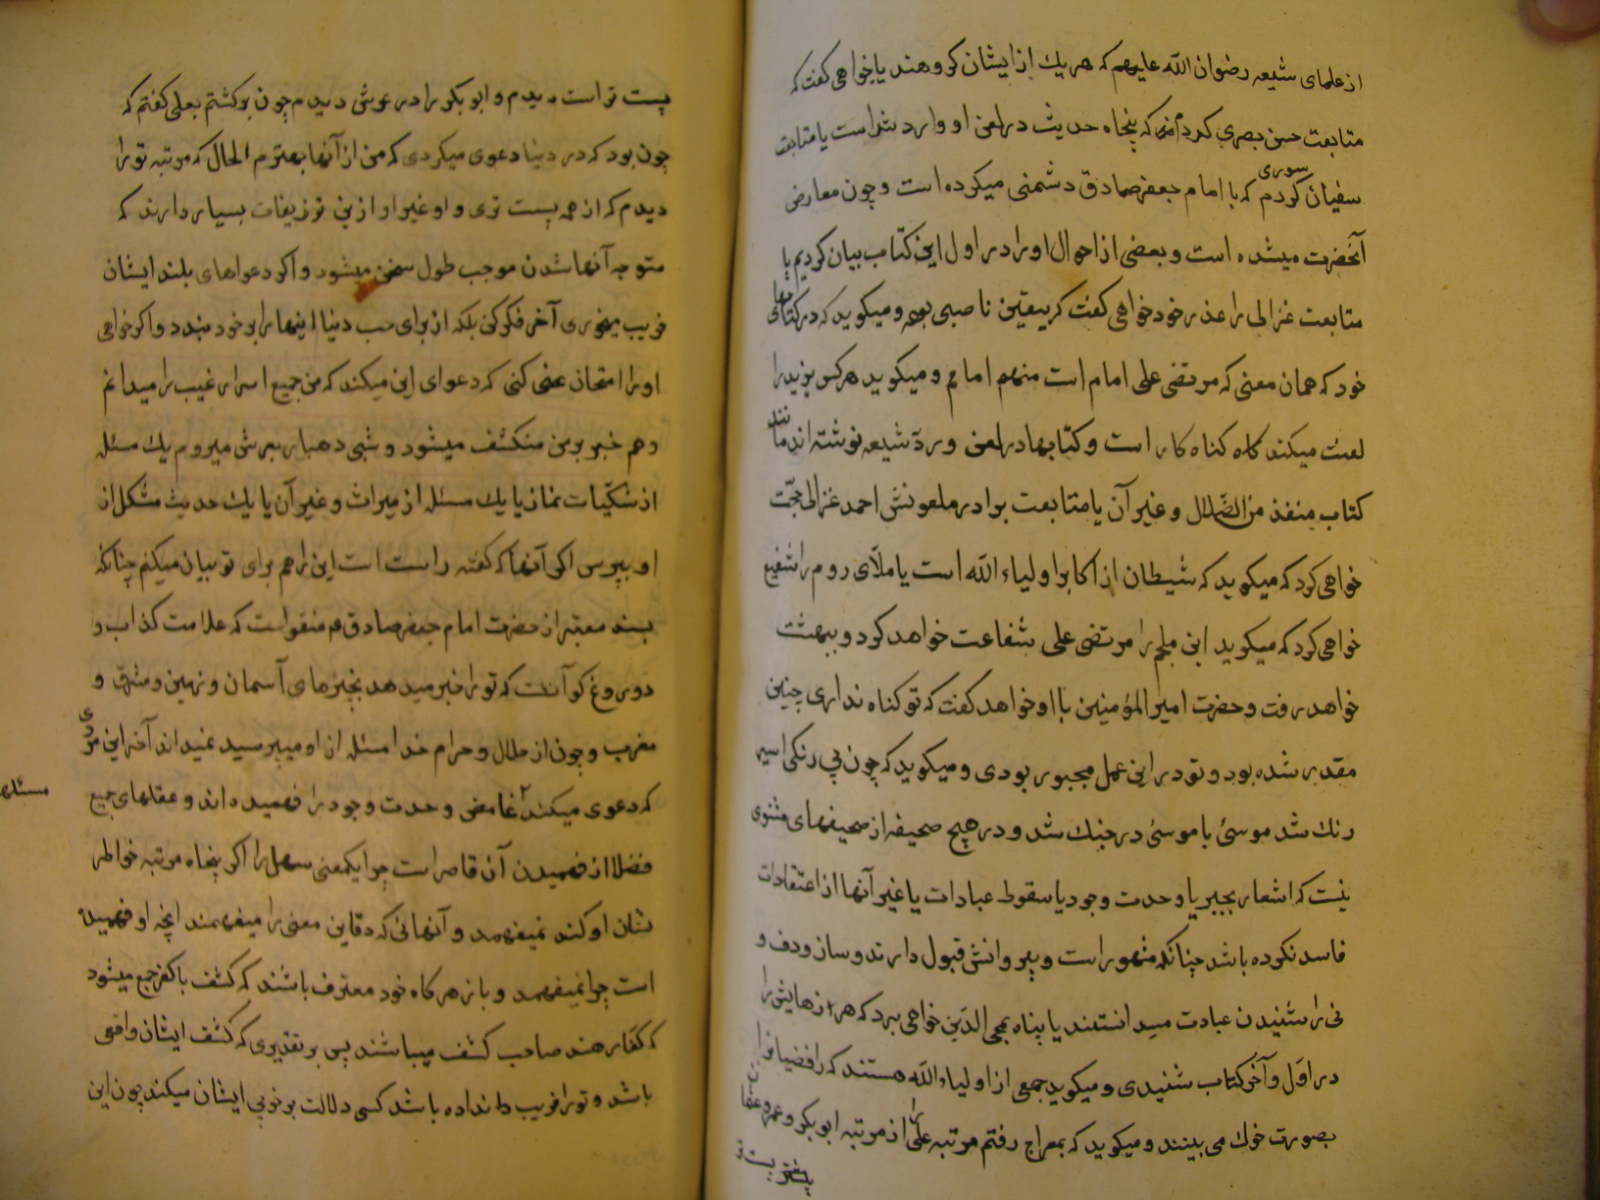 از علمای شیعه رضوان الله علیهم که هر یك از ایشان کروهند یا خواهی کفت که
متابعت حسن بصری کردم که پنجاه حدیث در لعن او وارد شده است یا متابعت
سفیان سوری کردم که با امام جعفر صادق دشمنی میکرده است و چون معارض
آنحضرت میشده است و بعضی از احوال او را در اول این کتاب بیان کردیم یا
متابعت غزالی را عذر خود خواهی کفت که بیقین ناصبی بوده و میکوید که در کتابهای
خود که همان معنی که مرتضی علی امام است منهم امام و میکوید هر کس یزید را
لعنت میکند کاه کناه کار است و کتابها در لعن و رد شیعه نوشته اند مانند
کتاب منقذ من الضلال و غیر آن یا متابعت برادر ملعونش احمد غزالی حجت
خواهی کرد که میکوید که شیطان از اکابر اولیاء الله است یا ملای روم را شفیع
خواهی کرد که میکوید ابن ملجم را مرتضی علی شفاعت خواهد کرد و ببهشت
خواهد رفت و حضرت امیر المؤمنین با او خواهد کفت که تو کناه نداری چنین
مقدر شده بود و تو در این عمل مجبور بودی و میکوید که چون بی رنکی اسیر
رنك شد موسئ با موسئ در جنك شد و در هیچ صحیفه از صحیفهای مثنوی
نیست که اشعار بجبر یا وحدت وجود یا سقوط عبادات یا غیر آنها از اعتقادات
فاسد نکرده باشد چنانکه مشهور است و پیروانش قبول دارند و ساز و دف و
نی را شنیدن عبادت میدانستند یا پناه بمحی الدین خواهی برد که هرزهایش را
در اول و آخر کتاب شنیدی و میکوید جمعی از اولیاء الله هستند که رافضیان را
بصورت خوك می بینند و میکوید که بمعراج رفتم مرتبه علی را از مرتبه ابوبکر و عمر و عثمان
پست تر
پست تر است دیدم و ابوبکر را در عرش دیدم چون برکشتم بعلی کفتم که
چون بود که در دنیا دعوی میکردی که من از آنها بهترم الحال که مرتبه تو را
دیدم که از همه پست تری و او و غیر او از این تزریقات بسیار دارند که
متوجه آنها شدن موجب طول سخن میشود و اکر دعواهای بلند ایشان
فریب میخوری آخر فکر کن بلکه از برای حب دنیا اینها را بر خود بندد و اکر خواهی
او را امتحان کنی که دعوای این میکند که من جمیع اسرار غیب را میدانم
و هم خبر بر من منکشف میشود و شبی ده بار بعرش میروم یك مسئله
از شکیات نماز یا یك مسئله از میراث و غیر آن یا یك حدیث مشکل از
او بپرس اکر آنها که کفته راست است این را هم برای تو بیان میکنم چنانکه
بسند معتبر از حضرت امام جعفر صادق م منقولست که علامت کذاب و
دوروغ کو آنست که تو را خبر میدهد بچیزهای آسمان و زمین و مشرق و
مغرب و چون از حلال و حرام خدا مسئله از او میپرسید نمیداند آخر این مردی
که دعوی میکند غامض وحدت وجود را فهمیده اند و عقلهای جمیع
مسئله
فضلا از فهمیدن آن قاصر است چرا یکمعنی سهل را اکر پنجاه مرتبه خواطر
نشان او کند نمیفهمد و آنهائی که دقایق معنی را میفهمند انچه او فهمیده
است چرا نمیفهمد و باز هر کاه خود معترف باشند که کشف با کفر جمع میشود
که کفار هند صاحب کشف میباشند پس بر تقدیری که کشف ایشان واقعی
باشد و تو را فریب نداده باشد کسی دلالت بر خوبی ایشان میکند چون این